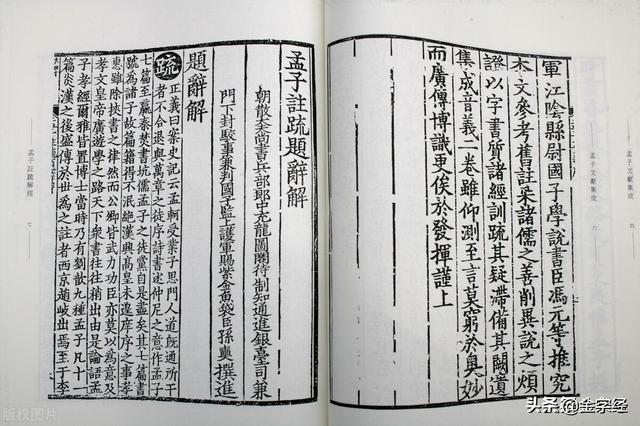 軍江陰縣尉國子學說書臣馮元等推究
本文參考舊註采諸儒之善削異說之煩
證以字書質諸經訓疏其疑滯備其闕遺
集成音義二卷雖仰測至言莫窮於奧妙
而廣傳博識更俟於發揮謹上
孟子文獻集成 四
孟子文獻集成 六
孟子註疏題辭解
朝散大夫尚書兵部郎中充龍圖閣待制知通進銀臺司兼
門下封駁事兼判國子監上護軍賜紫金魚袋臣孫奭撰進
題辭解
疏 正義曰案史記云孟軻受業子思門人道旣通所干
者不合退與萬章之徒序詩書述仲尼之意作孟子
七篇至嬴秦焚書坑儒孟子之徒黨自是盡矣其七篇書
號為諸子故篇籍得不泯絕漢興高皇未遑庠序之事孝
惠雖除挾書之律然而公卿皆武力功臣亦莫以為意及
孝文皇帝廣遊學之路天下衆書往往稍出由是論語孟
子孝經爾雅皆置博士當時乃有劉歆九種孟子凡十一
篇炎漢之後盛傳於世為之註者西京趙岐出焉至于李
孟子註疏解經 七
版权图片
头条 @金字经